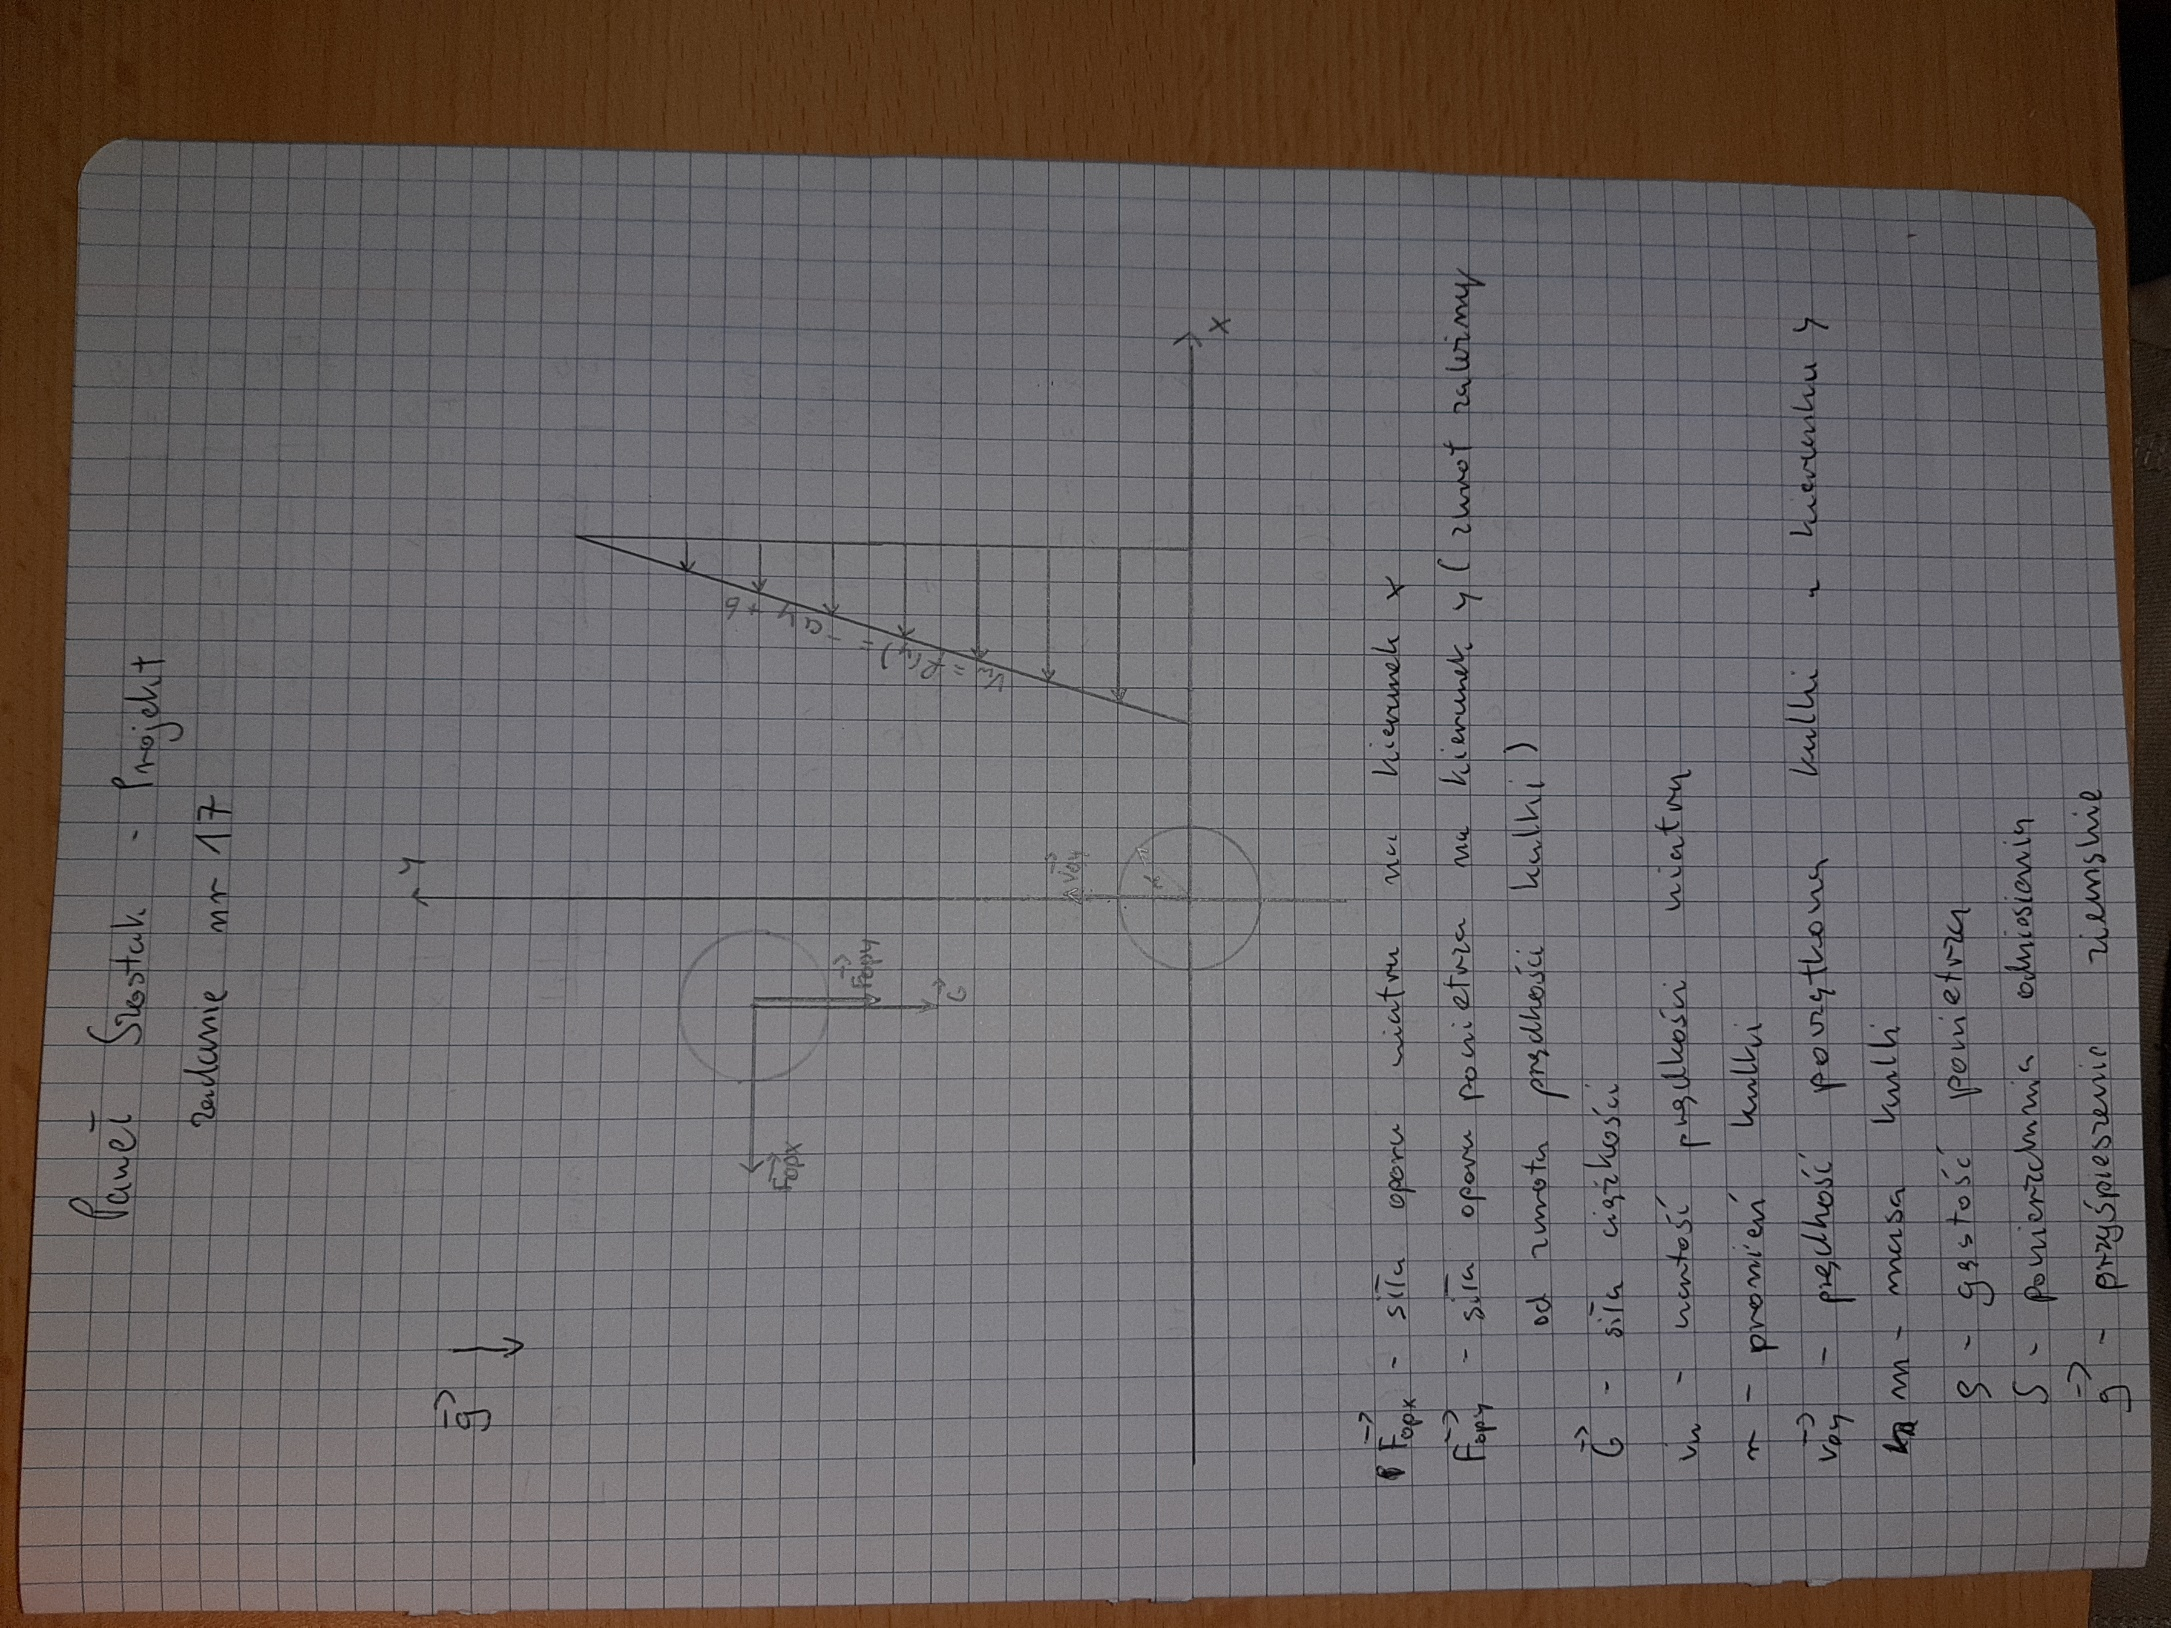 Paweł Szostak - Projekt
zadanie nr 17
g
y
Fopx
Fopy
G
Voy
r
Vw = f(y) = -ay + b
x
Fopx - siła oporu wiatru na kierunek x
Fopy - siła oporu powietrza na kierunek y (zwrot zależny
od zwrotu prędkości kulki)
G - siła ciężkości
vw - wartość prędkości wiatru
r - promień kulki
voy - prędkość początkowa kulki w kierunku y
m - masa kulki
ρ - gęstość powietrza
S - powierzchnia odniesienia
g - przyśpieszenie ziemskie